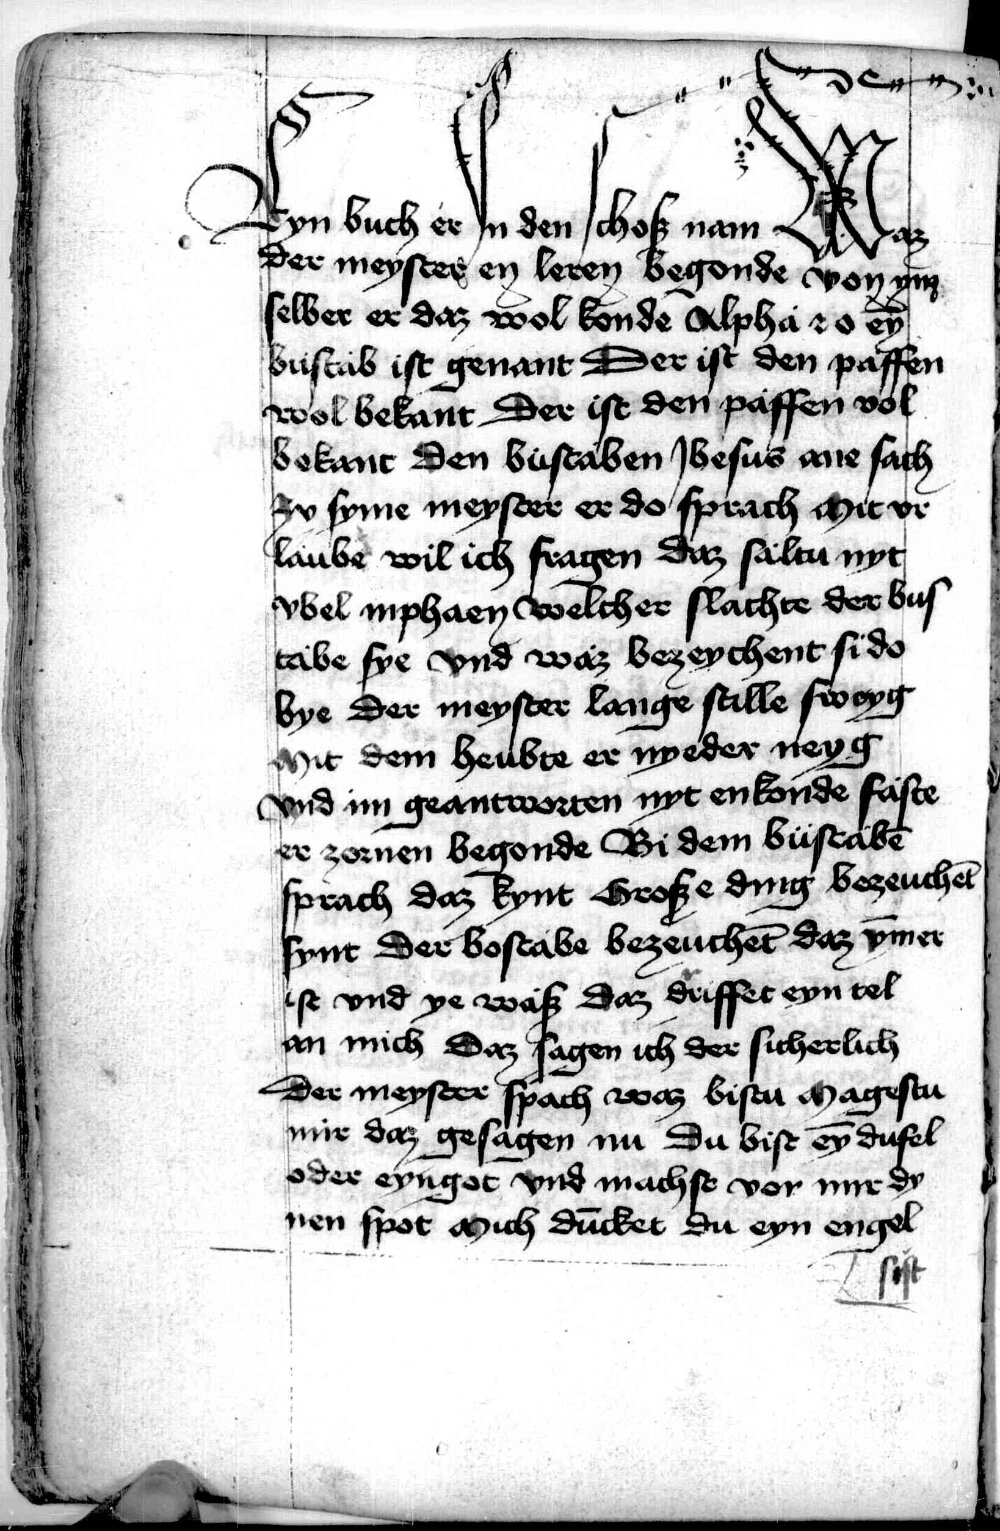 Eyn buch er In den schoß nam Waz
der meyster en leren begonde von ym
selber er daz wol konde Alpha z o eȳ
bustab ist genant Der ist den paffen
wol bekant Der ist den paffen vol
bekant Den bustaben Jhesus ane sach
Zv syme meyster er do sprach Mit vr
laube wil ich fragen daz saltu nyt
vbel inphaen Welcher slachte der bus
tabe sye vnd waz bezeychent si do
bye Der meyster lange stille sweyg
Mit dem heubte er nyeder neyg
Vnd im geantworten nyt enkonde faste
er zornen begonde Bi dem bustabē
sprach daz kynt Große ding bezeuchēt
synt Der bostabe bezeuchēt daz ȳmer
ist vnd ye waß Daz driffet eyn tel
an mich Daz sagen ich der sicherlich
Der meyster spach waz bistu Magestu
mir daz gesagen nu Du bist eȳ dufel
oder eyngot vnd machst vor mir dy
nen spot Mich dūcket du eyn engel
sist